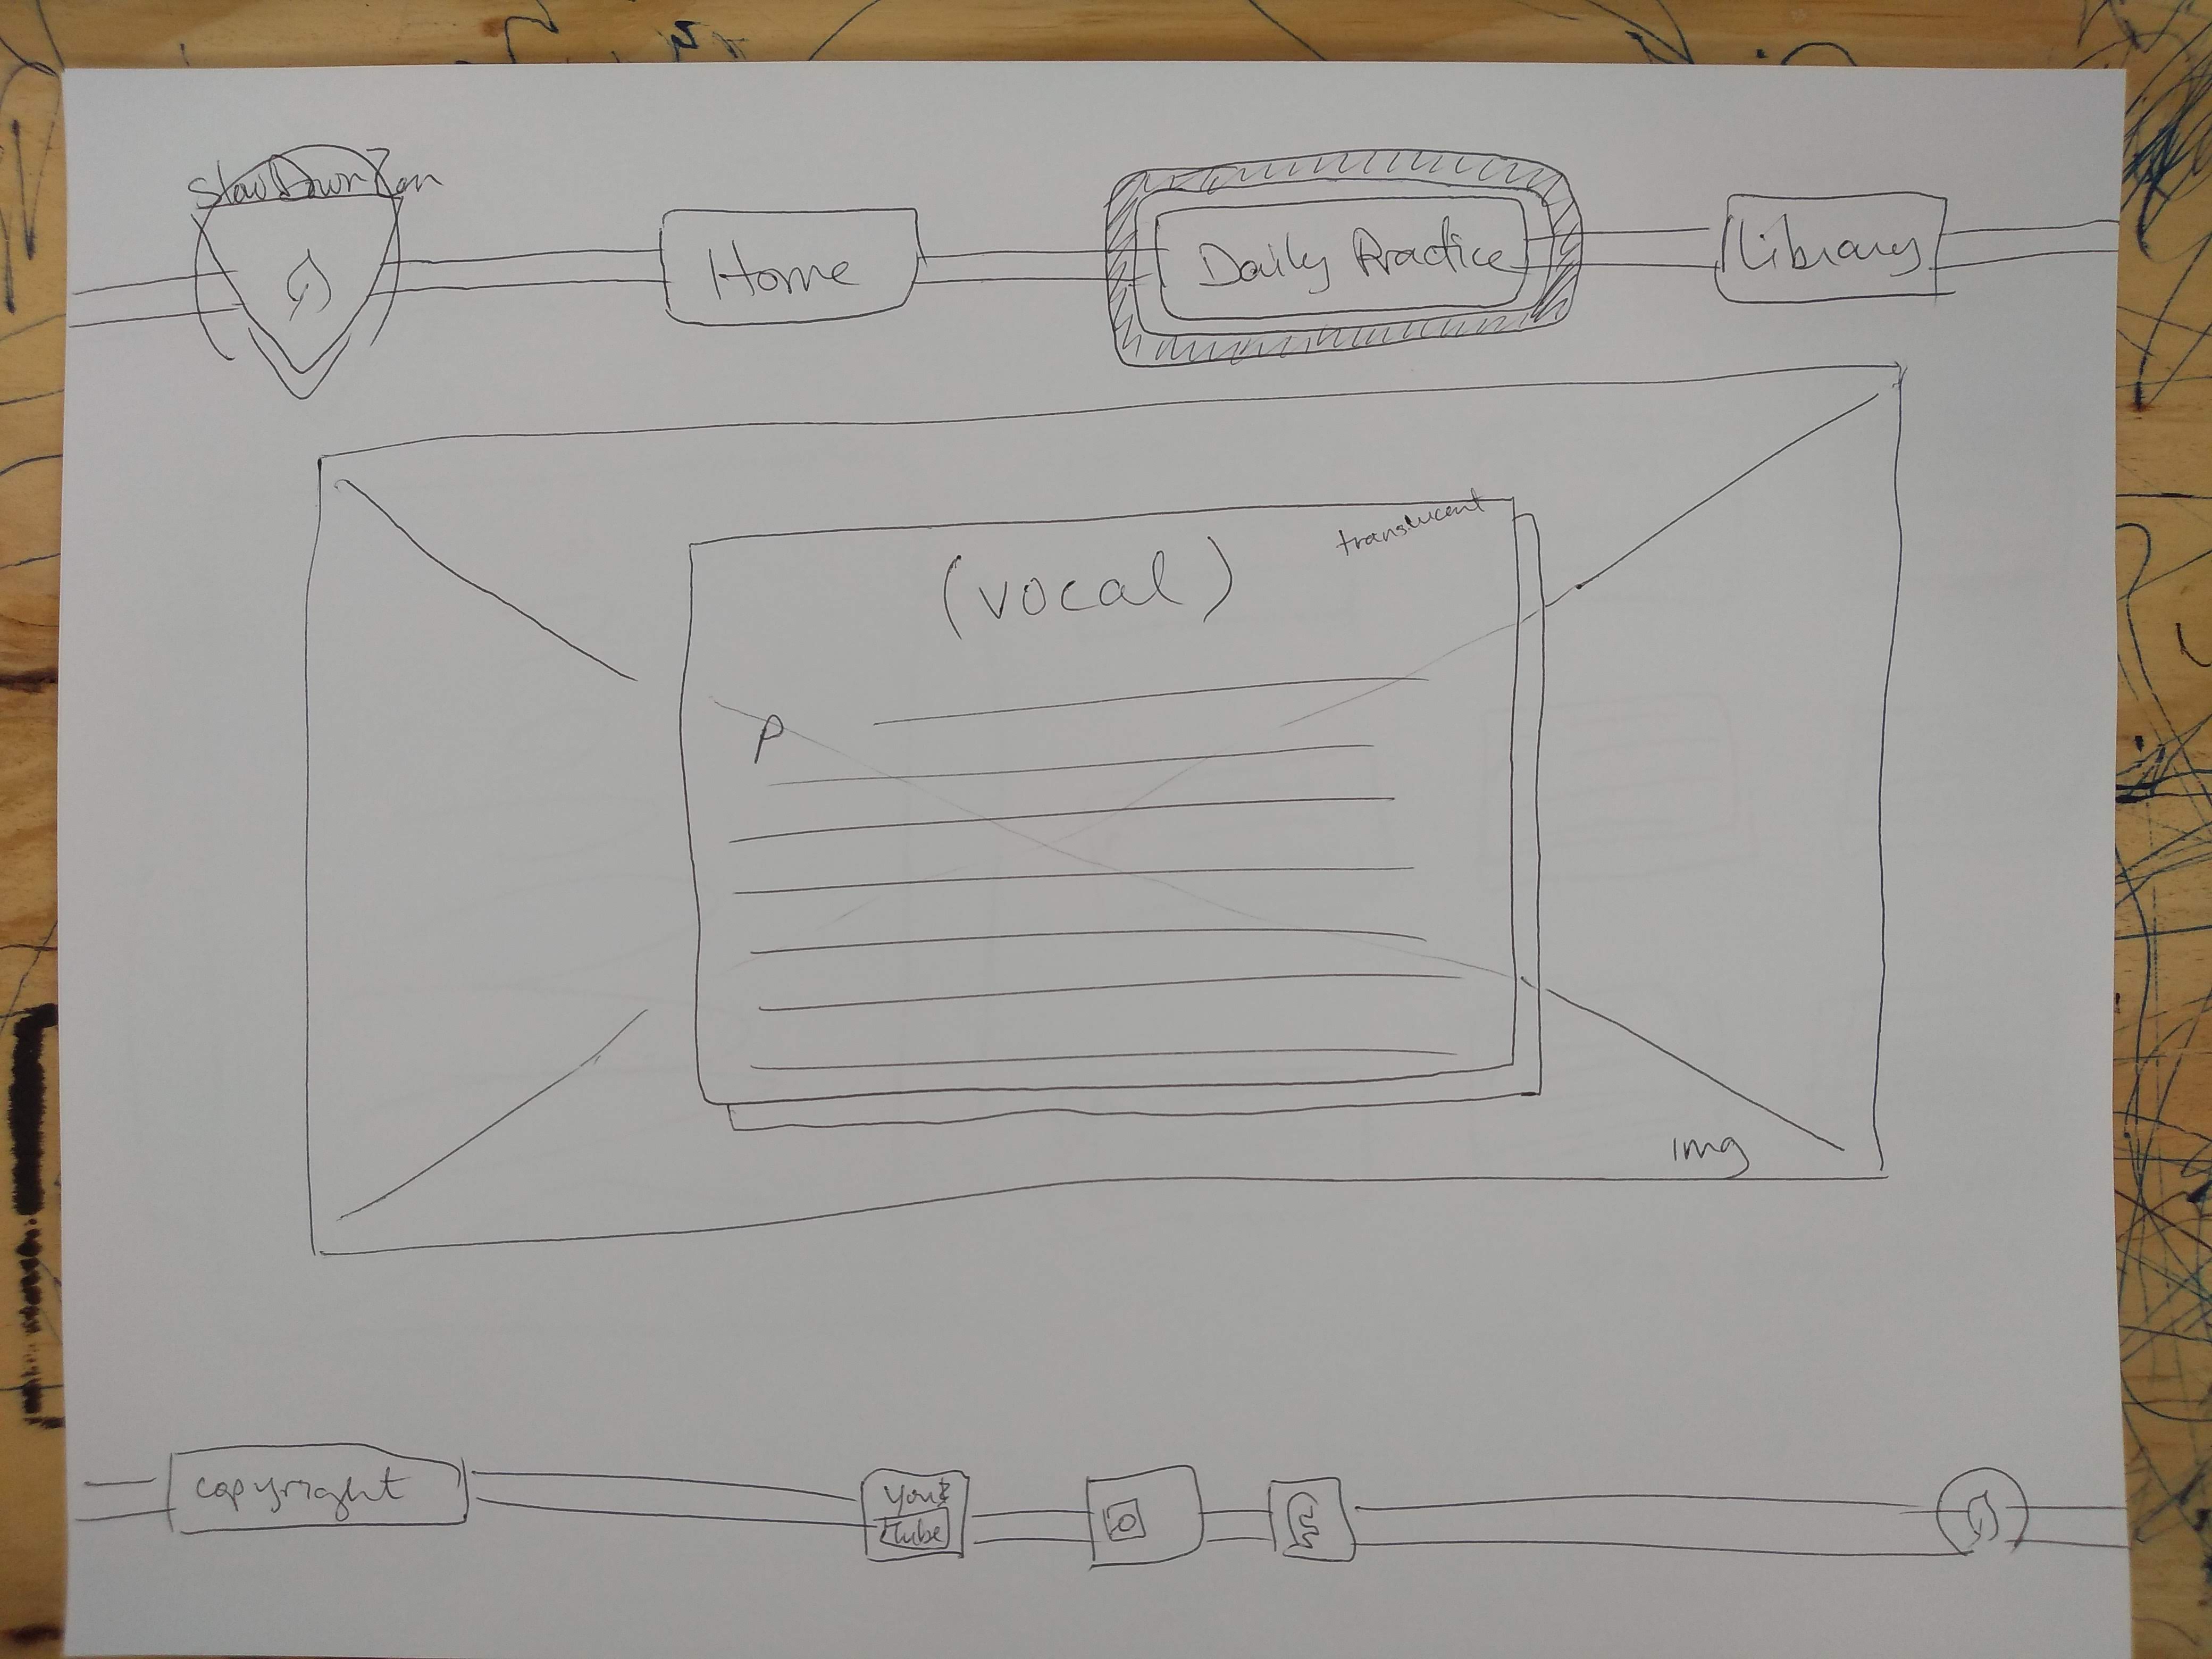 SlowDownZen
Home
Daily Practice
Library
translucent
(vocal)
P
img
copyright
You
Tube